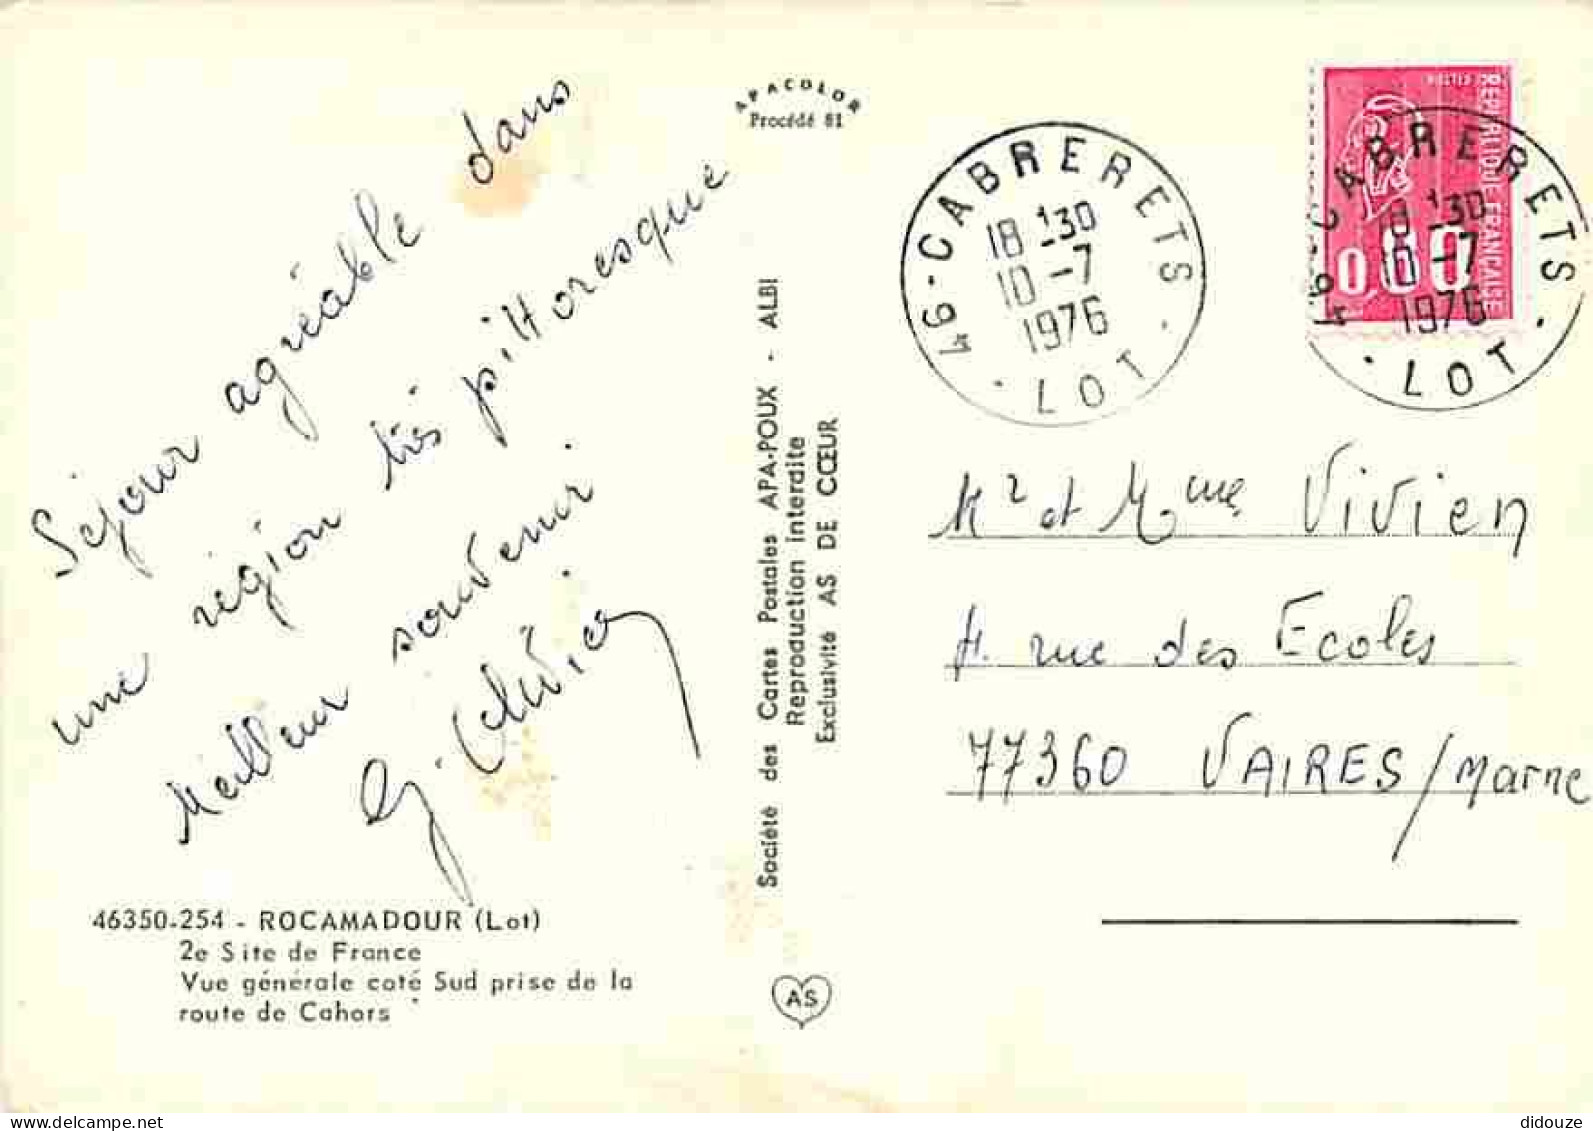 Séjour agréable dans
une région très pittoresque
Meilleur souvenir
46350-254 - ROCAMADOUR (Lot)
2e Site de France
Vue générale coté Sud prise de la
route de Cahors
APACOLOR
Procédé 81
Société des Cartes Postales APA-POUX - ALBI
Reproduction interdite
Exclusivité AS DE CŒUR
AS
46-CABRERETS
18 30
10-7
1976
LOT
REPUBLIQUE FRANÇAISE
0,80
46-CABRERETS
18 30
10-7
1976
LOT
Mr et Mme Vivien
rue des Ecoles
77360 VAIRES/Marne
delcampe.net
didouze